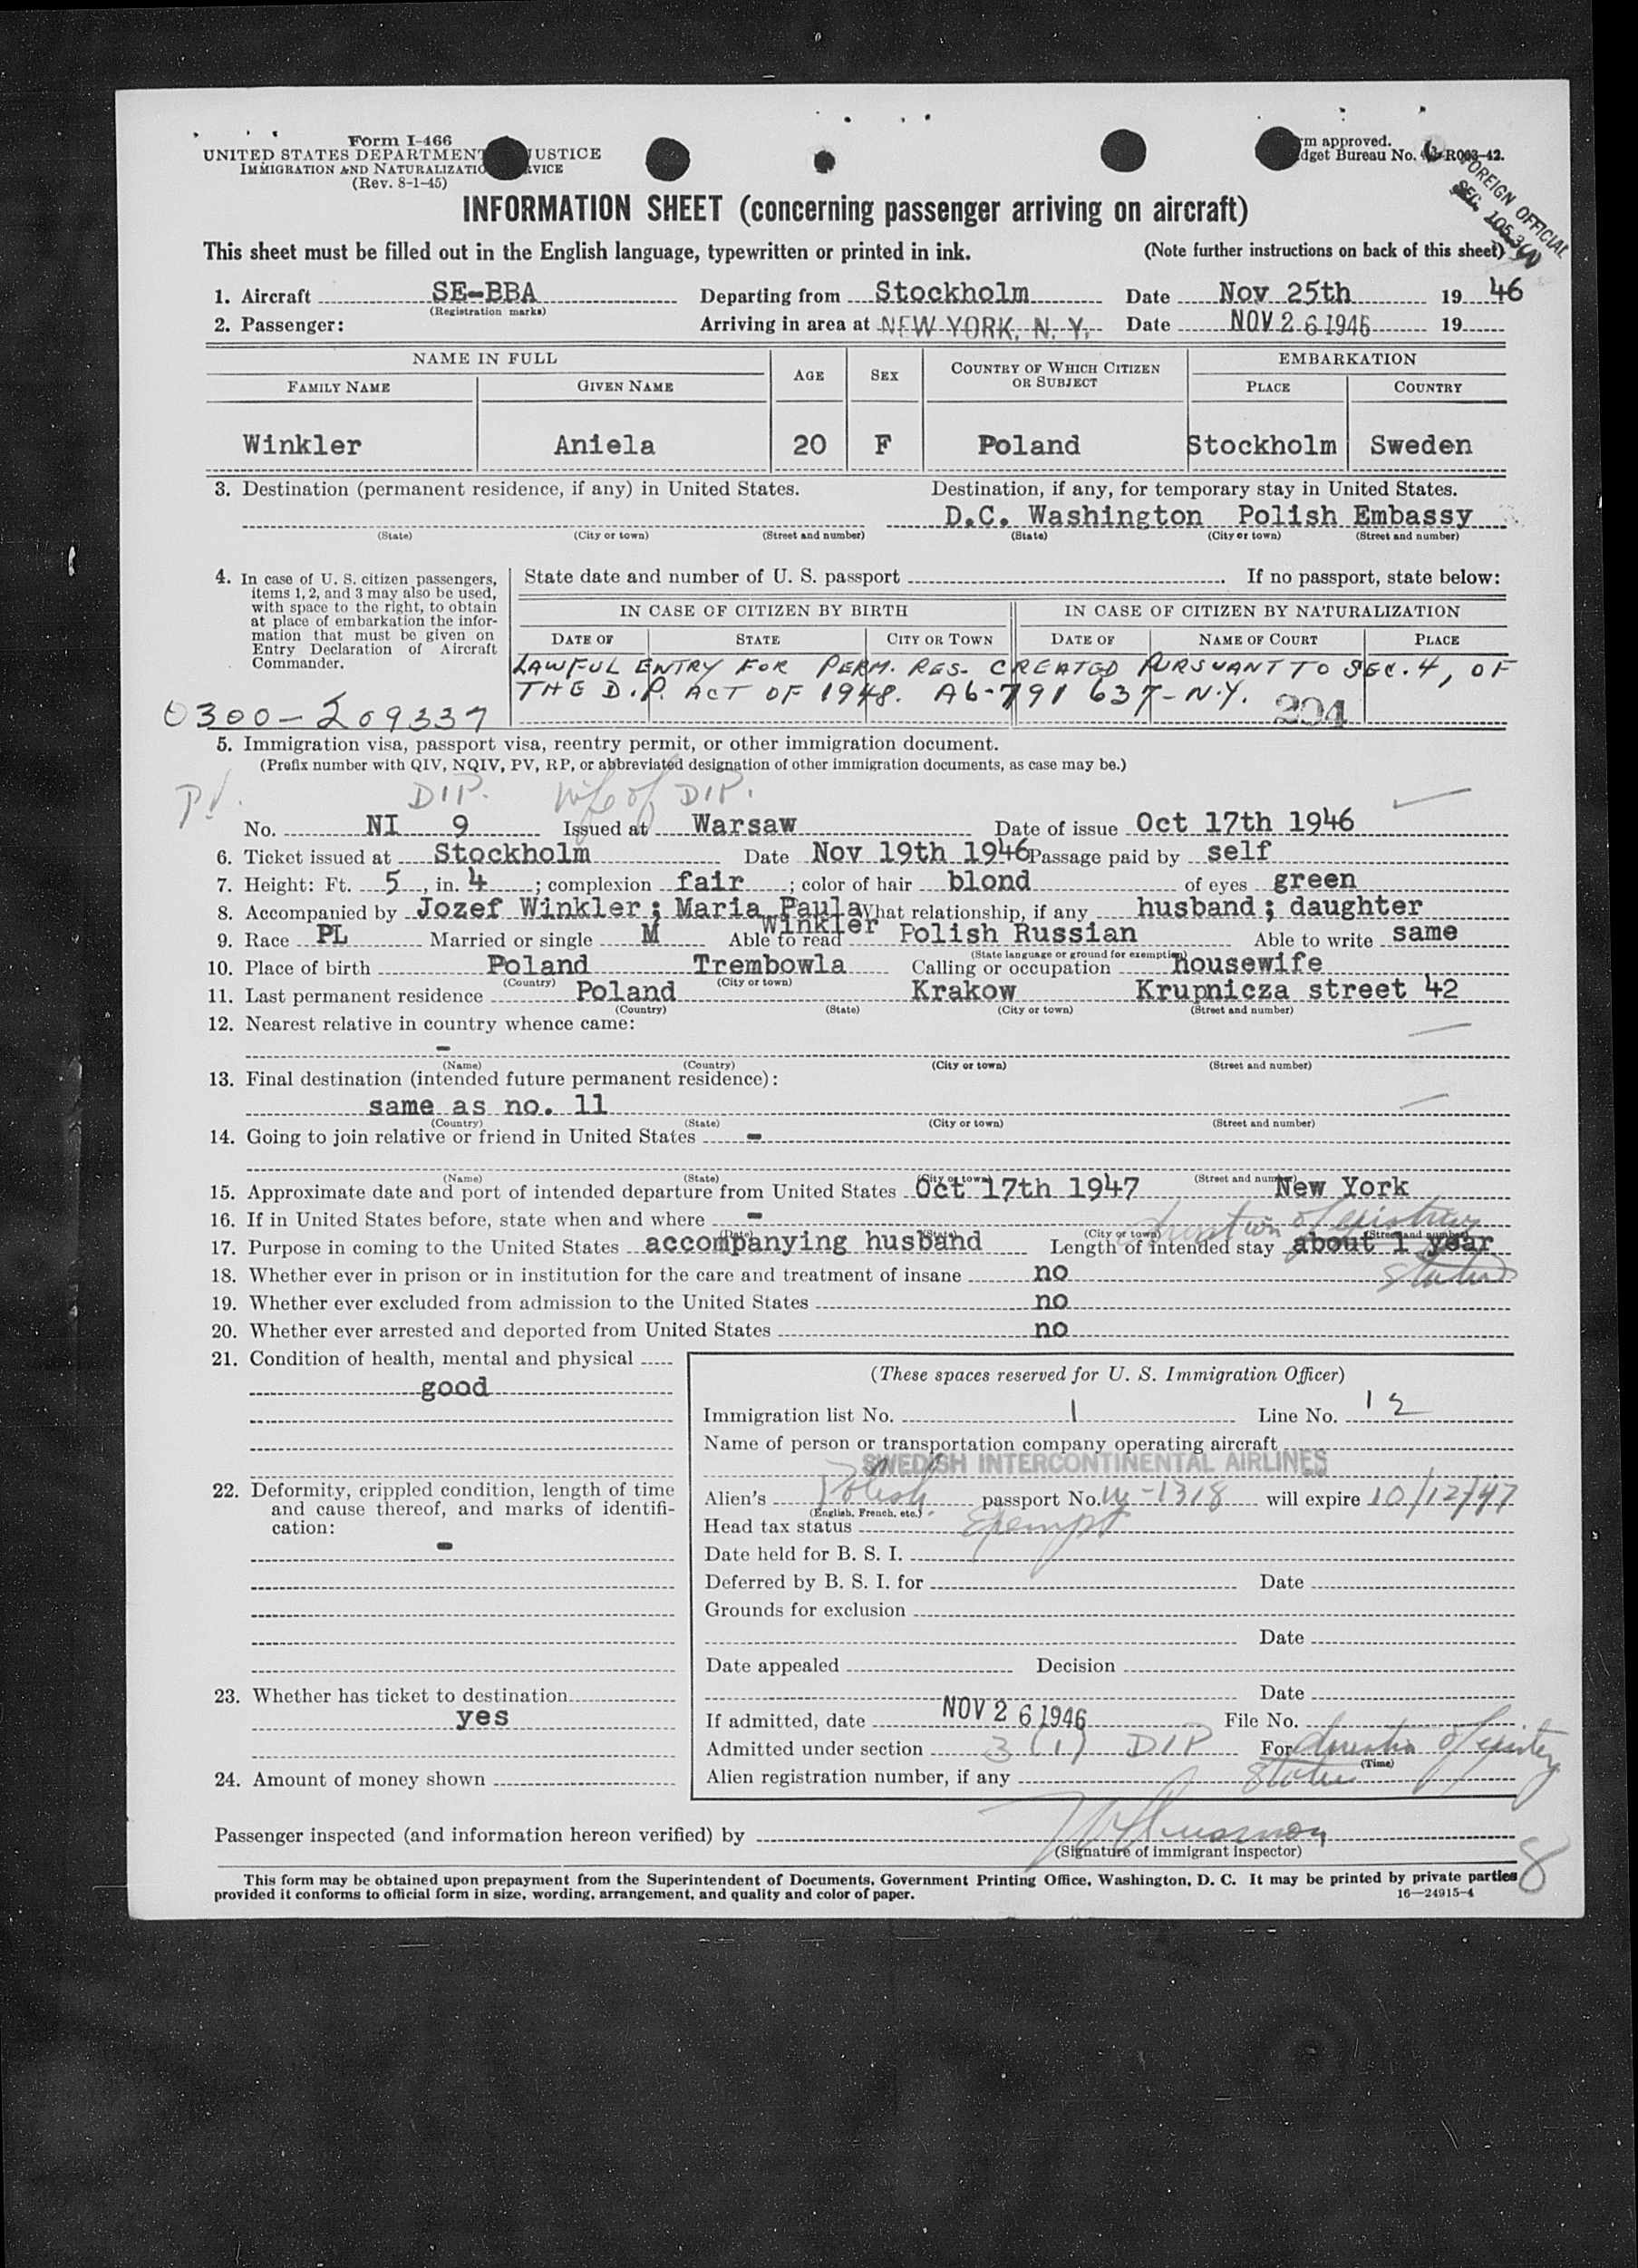 Form I-466
UNITED STATES DEPARTMENT JUSTICE
IMMIGRATION AND NATURALIZATIO RVICE
(Rev. 8-1-45)
m approved.
dget Bureau No. R063-42.
FOREIGN OFFICIAL
SEC. 105.3
INFORMATION SHEET (concerning passenger arriving on aircraft)
This sheet must be filled out in the English language, typewritten or printed in ink. (Note further instructions on back of this sheet)
1. Aircraft SE-BBA Departing from Stockholm Date Nov 25th 19 46
(Registration marks)
2. Passenger: Arriving in area at NEW YORK, N. Y. Date NOV 26 1946 19
NAME IN FULL AGE SEX COUNTRY OF WHICH CITIZEN OR SUBJECT EMBARKATION
FAMILY NAME GIVEN NAME PLACE COUNTRY
Winkler Aniela 20 F Poland Stockholm Sweden
3. Destination (permanent residence, if any) in United States. Destination, if any, for temporary stay in United States.
D.C. Washington Polish Embassy
(State) (City or town) (Street and number) (State) (City or town) (Street and number)
4. In case of U. S. citizen passengers, items 1, 2, and 3 may also be used, with space to the right, to obtain at place of embarkation the information that must be given on Entry Declaration of Aircraft Commander.
State date and number of U. S. passport If no passport, state below:
IN CASE OF CITIZEN BY BIRTH IN CASE OF CITIZEN BY NATURALIZATION
DATE OF STATE CITY OR TOWN DATE OF NAME OF COURT PLACE
LAWFUL ENTRY FOR PERM. RES. CREATED PURSUANT TO SEC. 4, OF
THE D.P. ACT OF 1948. A6-791 637-N.Y. 294
0300-209337
5. Immigration visa, passport visa, reentry permit, or other immigration document.
(Prefix number with QIV, NQIV, PV, RP, or abbreviated designation of other immigration documents, as case may be.)
P.V. DIP. Wife of DIP.
No. NI 9 Issued at Warsaw Date of issue Oct 17th 1946
6. Ticket issued at Stockholm Date Nov 19th 1946 Passage paid by self
7. Height: Ft. 5, in. 4; complexion fair; color of hair blond of eyes green
8. Accompanied by Jozef Winkler; Maria Paula Winkler What relationship, if any husband; daughter
9. Race PL Married or single M Able to read Polish Russian Able to write same
(State language or ground for exemption)
10. Place of birth Poland Trembowla Calling or occupation housewife
(Country) (City or town)
11. Last permanent residence Poland Krakow Krupnicza street 42
(Country) (State) (City or town) (Street and number)
12. Nearest relative in country whence came:
-
(Name) (Country) (City or town) (Street and number)
13. Final destination (intended future permanent residence):
same as no. 11
(Country) (State) (City or town) (Street and number)
14. Going to join relative or friend in United States -
(Name) (State) (City or town) (Street and number)
15. Approximate date and port of intended departure from United States Oct 17th 1947 New York
16. If in United States before, state when and where -
(Date) (State) (City or town) (Street and number)
duration of existing
17. Purpose in coming to the United States accompanying husband Length of intended stay about 1 year
status
18. Whether ever in prison or in institution for the care and treatment of insane no
19. Whether ever excluded from admission to the United States no
20. Whether ever arrested and deported from United States no
21. Condition of health, mental and physical
good
22. Deformity, crippled condition, length of time and cause thereof, and marks of identification:
-
23. Whether has ticket to destination
yes
24. Amount of money shown
(These spaces reserved for U. S. Immigration Officer)
Immigration list No. 1 Line No. 12
Name of person or transportation company operating aircraft
SWEDISH INTERCONTINENTAL AIRLINES
Alien's Polish passport No. -1318 will expire 10/12/47
(English, French, etc.)
Head tax status Exempt
Date held for B. S. I.
Deferred by B. S. I. for Date
Grounds for exclusion
Date
Date appealed Decision
Date
If admitted, date NOV 26 1946 File No.
Admitted under section 3(1) DIP For duration of existing
(Time)
Alien registration number, if any status
Passenger inspected (and information hereon verified) by
(Signature of immigrant inspector)
8
This form may be obtained upon prepayment from the Superintendent of Documents, Government Printing Office, Washington, D. C. It may be printed by private parties
provided it conforms to official form in size, wording, arrangement, and quality and color of paper. 16—24915-4